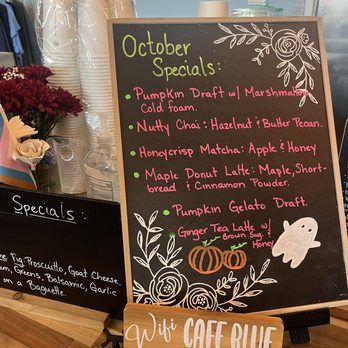 October
Specials:
Pumpkin Draft w/ Marshmallow
Cold foam.
Nutty Chai: Hazelnut & Butter Pecan.
Honeycrisp Matcha: Apple & Honey
Maple Donut Latte: Maple, Short-
bread & Cinnamon Powder.
Pumpkin Gelato Draft.
Ginger Tea Latte w/
Brown Sug. &
Honey
Specials:
Fig, Prosciutto, Goat Cheese
Greens, Balsamic, Garlic
on a Baguette.
Wifi CAFE BLUE